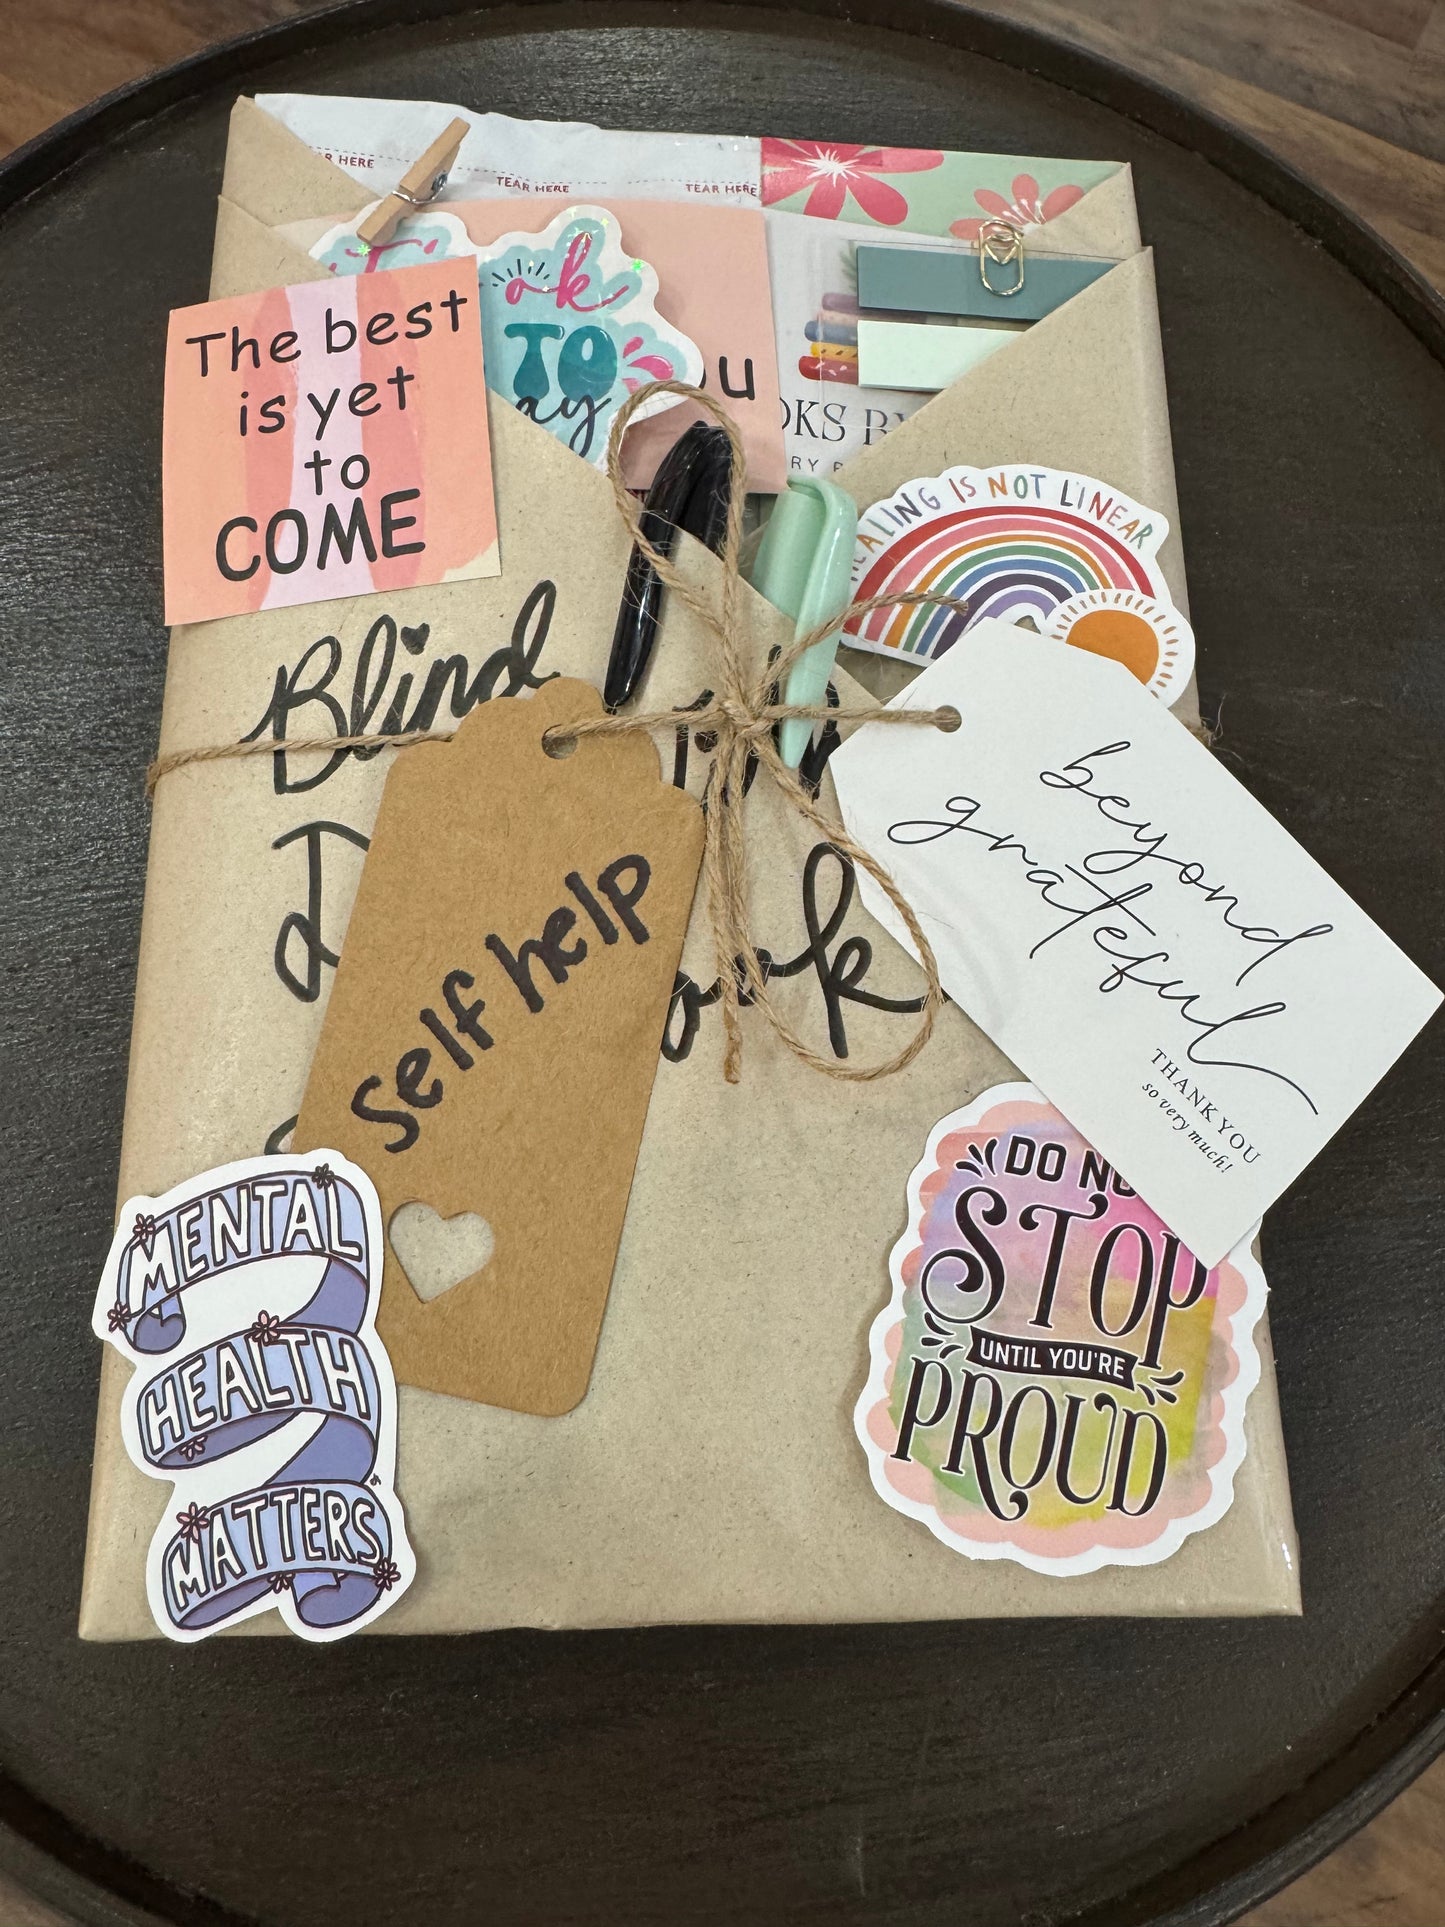 TEAR HERE
TEAR HERE
The best
is yet
to
COME
ok
TO
ay
ou
OKS B
RY
HEALING IS NOT LINEAR
Blind
D
self help
beyond
grateful
THANK YOU
so very much!
MENTAL
HEALTH
MATTERS
DO NO
STOP
UNTIL YOU'RE
PROUD